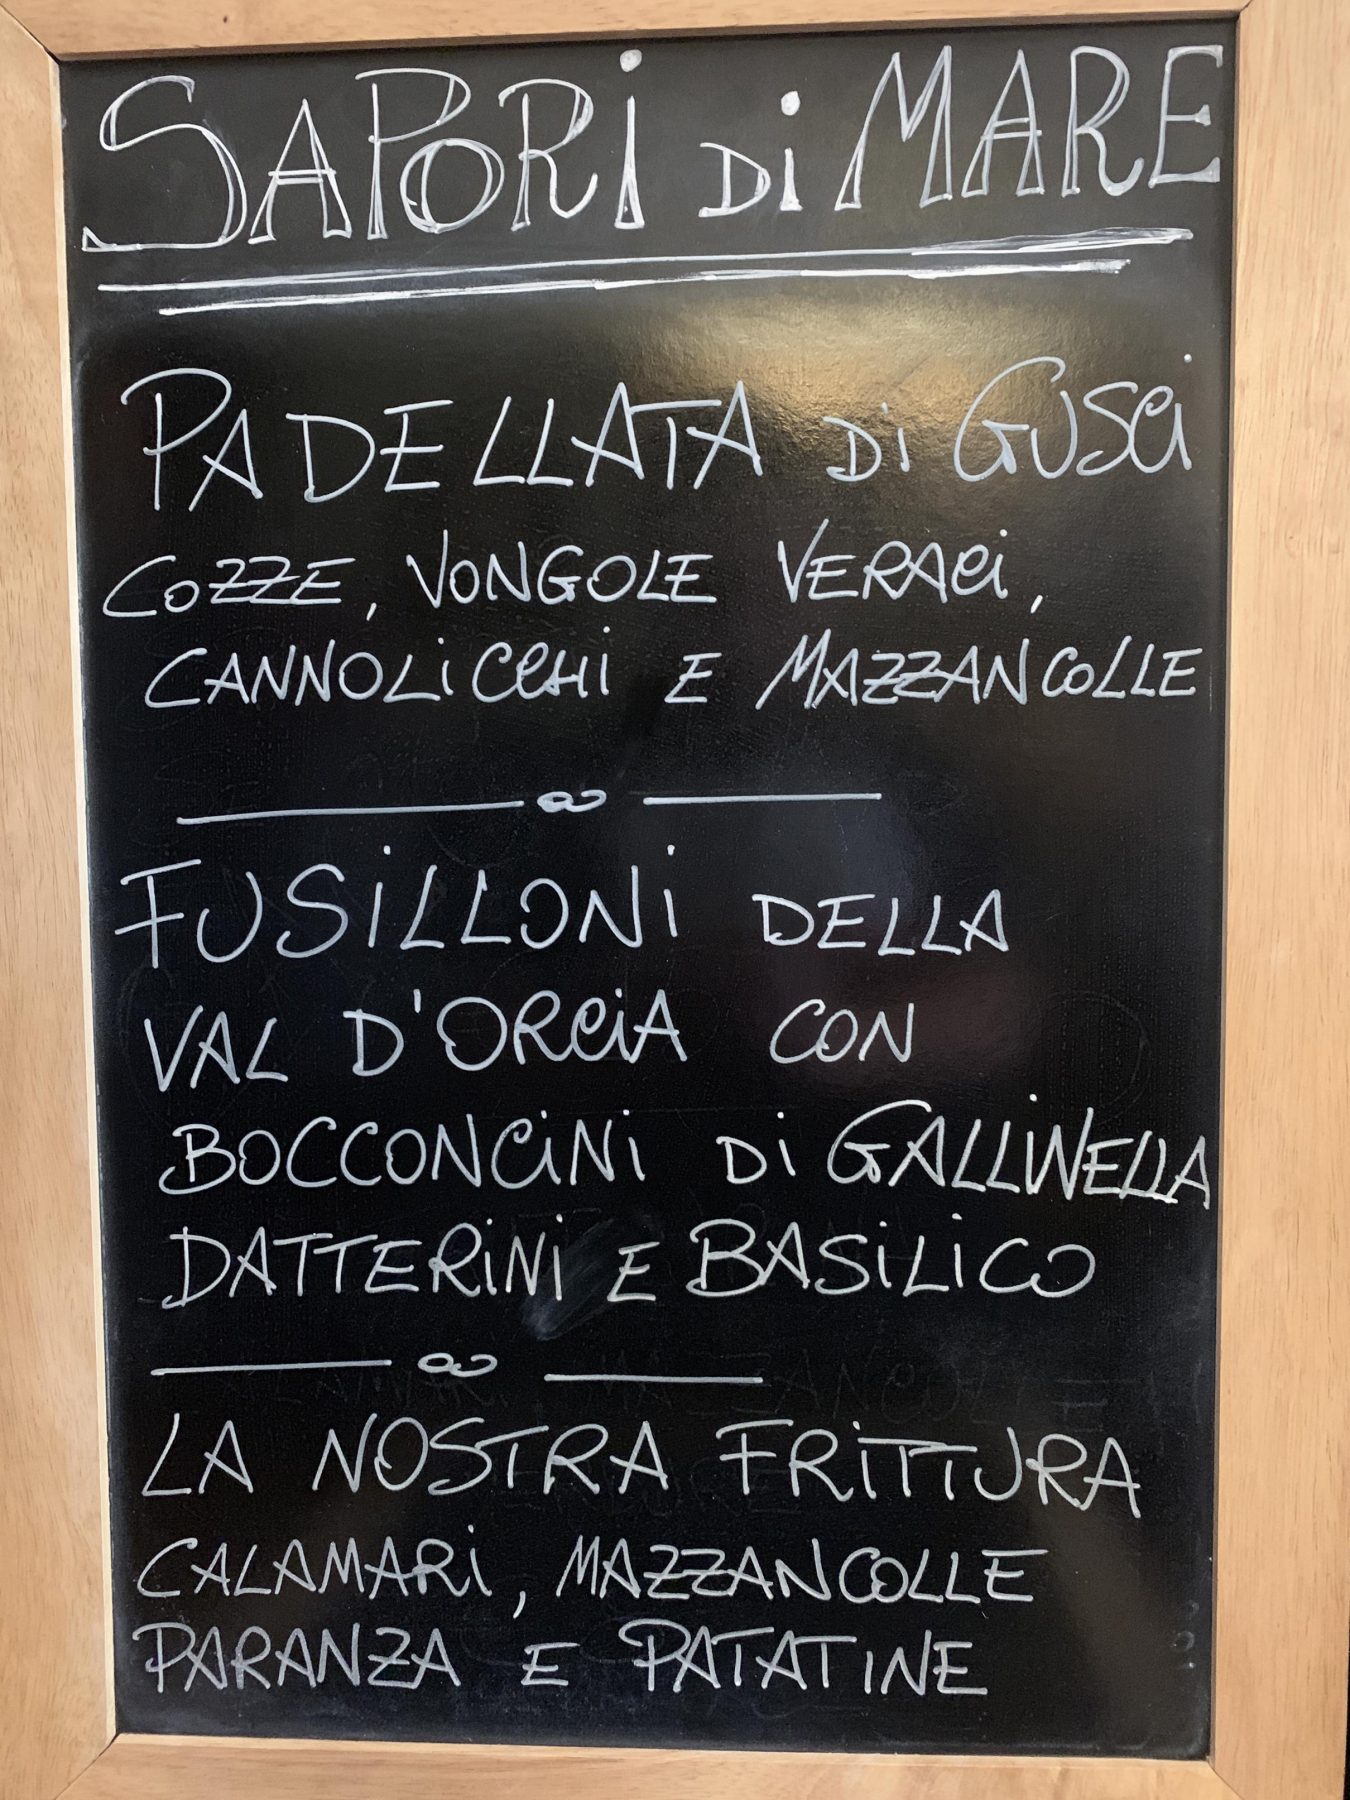 SAPORI DI MARE
PADELLATA DI GUSCI
COZZE, VONGOLE VERACI,
CANNOLICCHI E MAZZANCOLLE
FUSILLONI DELLA
VAL D'ORCIA CON
BOCCONCINI DI GALLINELLA
DATTERINI E BASILICO
LA NOSTRA FRITTURA
CALAMARI, MAZZANCOLLE
PARANZA E PATATINE